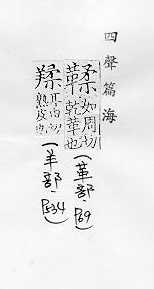 四聲篇海
鞣 如周切
乾革也
(革部.P.69)
羺 耳由切
熟皮也
(羊部.P.534)